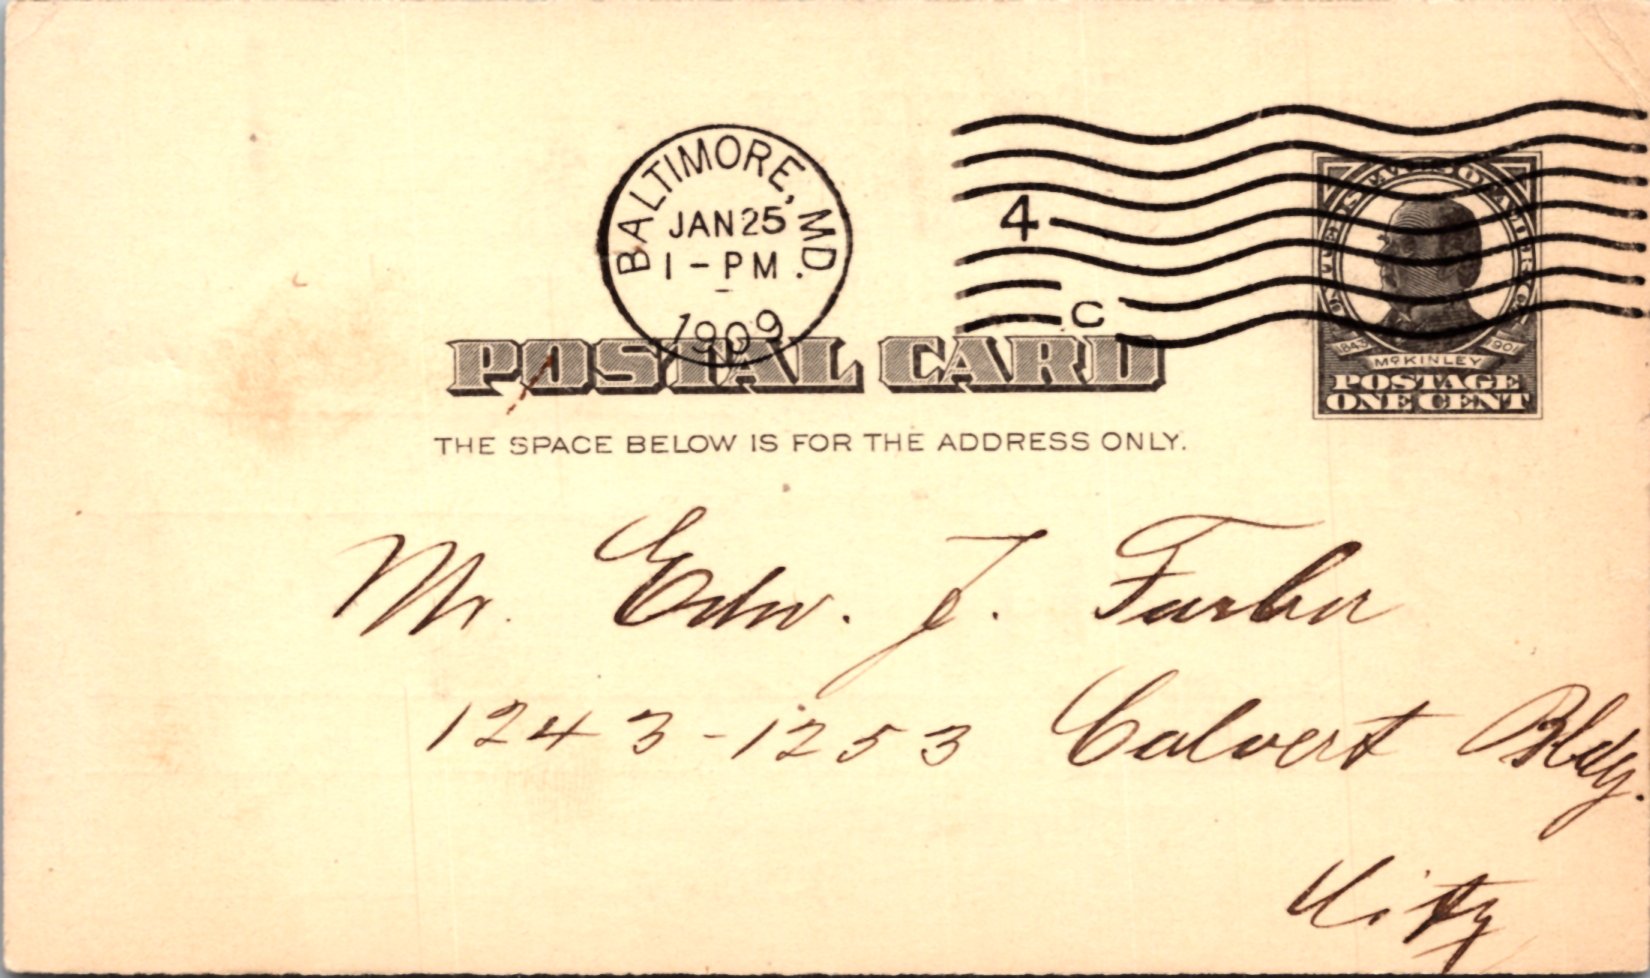 BALTIMORE, MD.
JAN 25
1-PM
1909
4
C
UNITED STATES OF AMERICA
1843 1901
McKINLEY
POSTAGE
ONE CENT
POSTAL CARD
THE SPACE BELOW IS FOR THE ADDRESS ONLY.
Mr. Edw. J. Farber
1243-1253 Calvert Bldg.
City